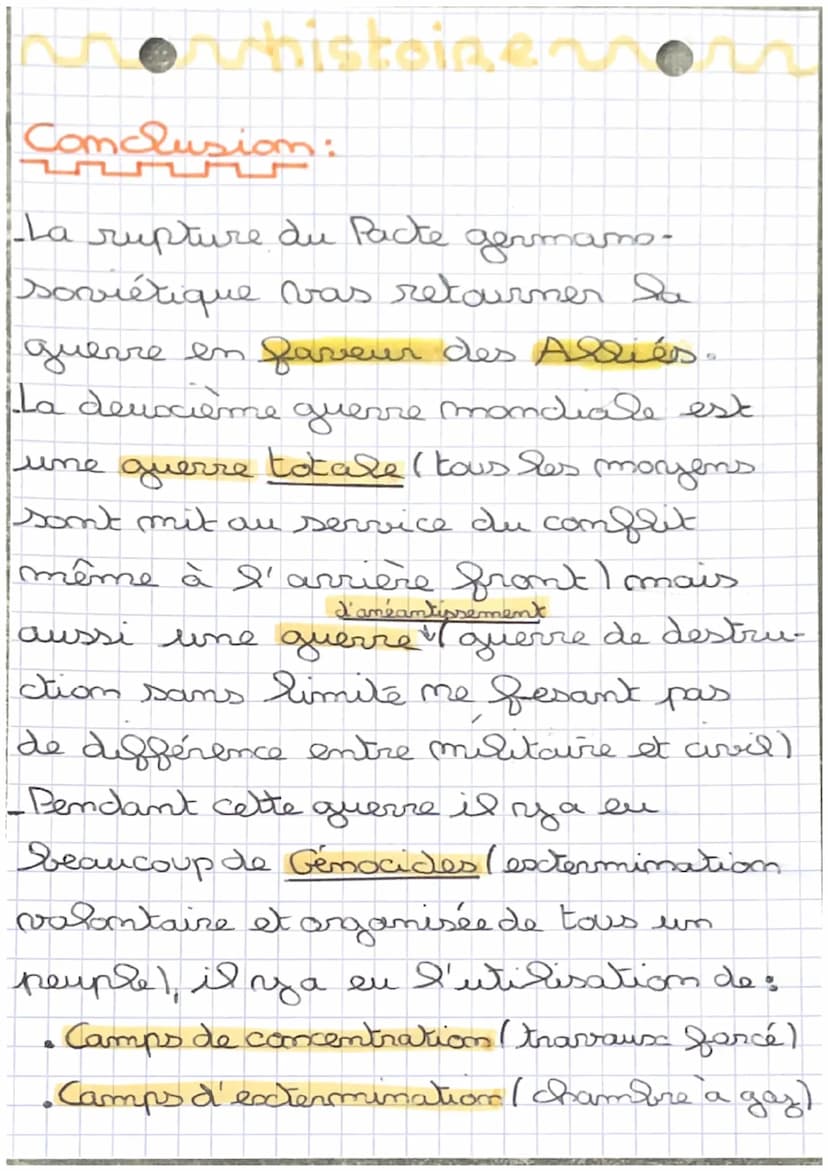 histoire
Conclusion:
-La rupture du Pacte germano-
soviétique vas retourner la
guerre en faveur des Alliés.
La deuxième guerre mondiale est
une guerre totale (tous les moyens
sont mit au service du conflit
même à l'arrière front) mais
d'anéantissement
aussi une guerre (guerre de destru-
ction sans limite ne fesant pas
de différence entre militaire et civil)
-Pendant cette guerre il y a eu
beaucoup de Génocides (extermination
volontaire et organisée de tous un
peuple), il y a eu l'utilisation de:
. Camps de concentration (travaux forcé)
. Camps d'extermination (chambre à gaz)